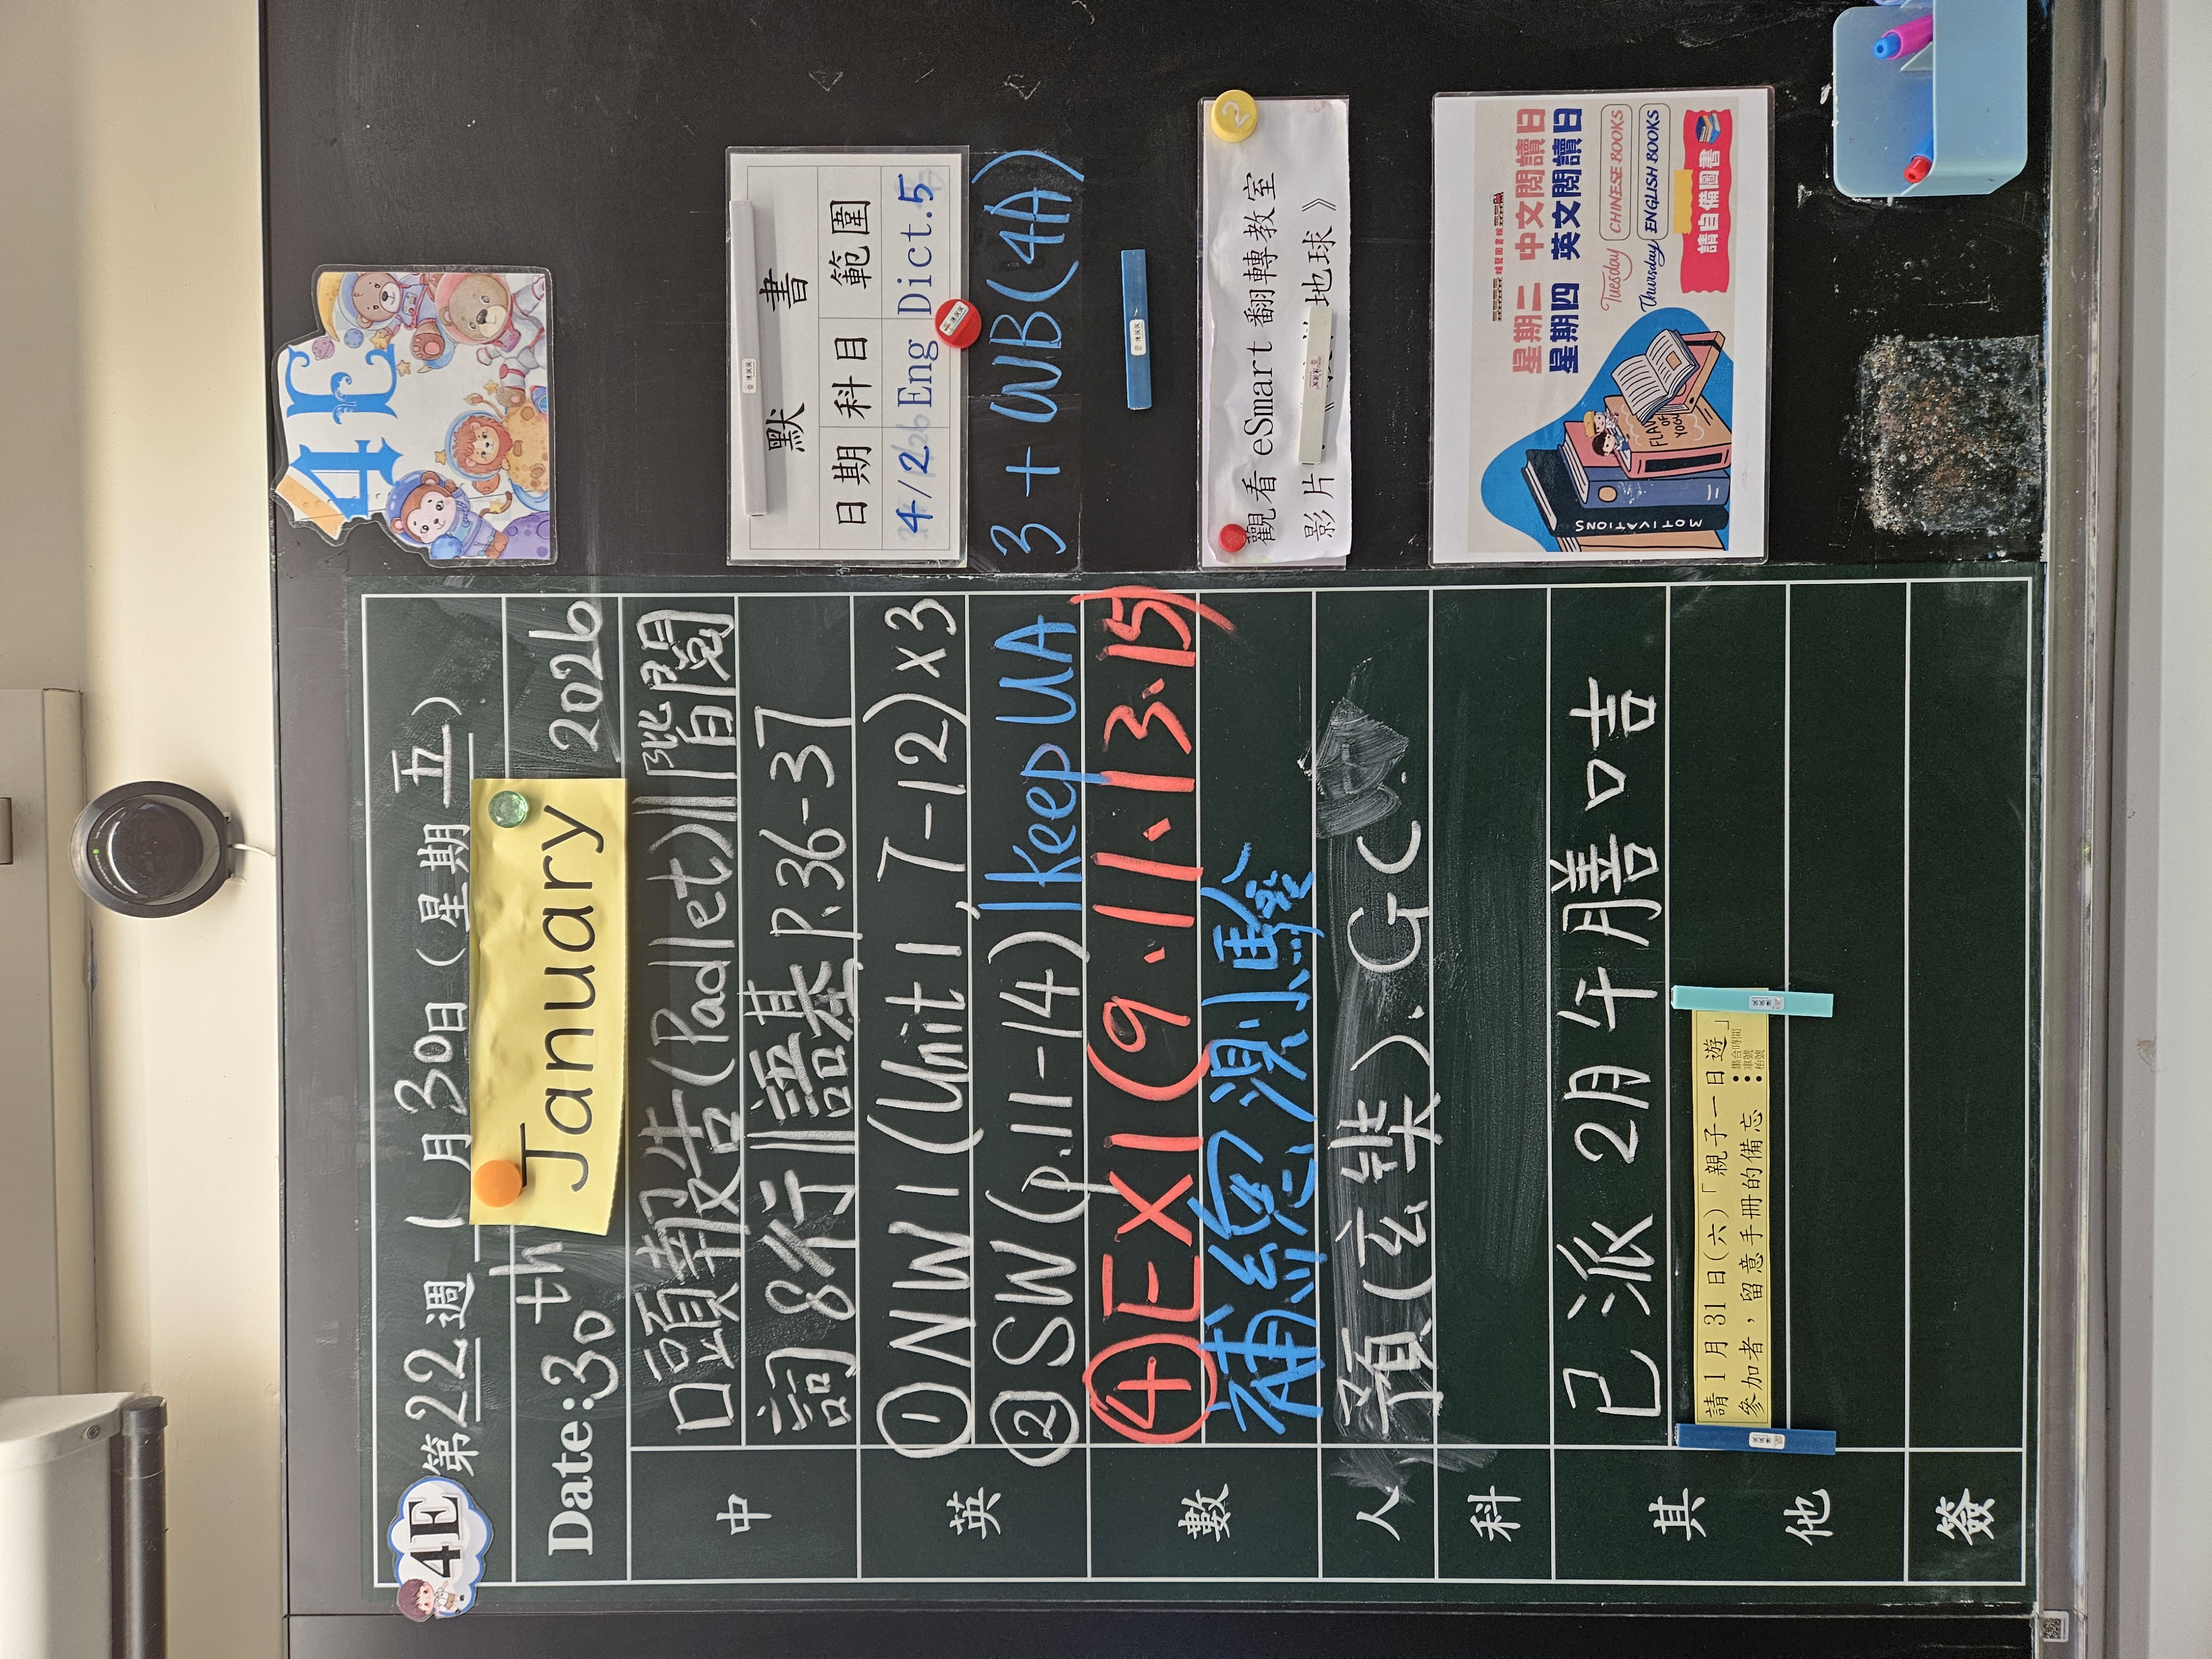 4E
第22週 1月30日(星期五)
Date:30th January 2026
中
口頭報告(Padlet)|階閱
詞8行|語基P.36-37
英
①NW1(Unit 1, 7-12)×3
②SW(p.11-14)|Keep UA
數
④EX1(9.11.13.15)
補總測驗
人
預(玄樂).GC.
科
其他
已派2月午膳口吉
請1月31日(六)「親子一日遊」
參加者，留意手冊的備忘
•集合時間
•車號
•枱號
簽
4E
默 書
日期 科目 範圍
4/2 Eng Dict.5
3+WB(4A)
2
觀看 eSmart 翻轉教室
影片《 地球》
星期二 中文閱讀日
星期四 英文閱讀日
Tuesday CHINESE BOOKS
Thursday ENGLISH BOOKS
請自備圖書
MOTIVATIONS